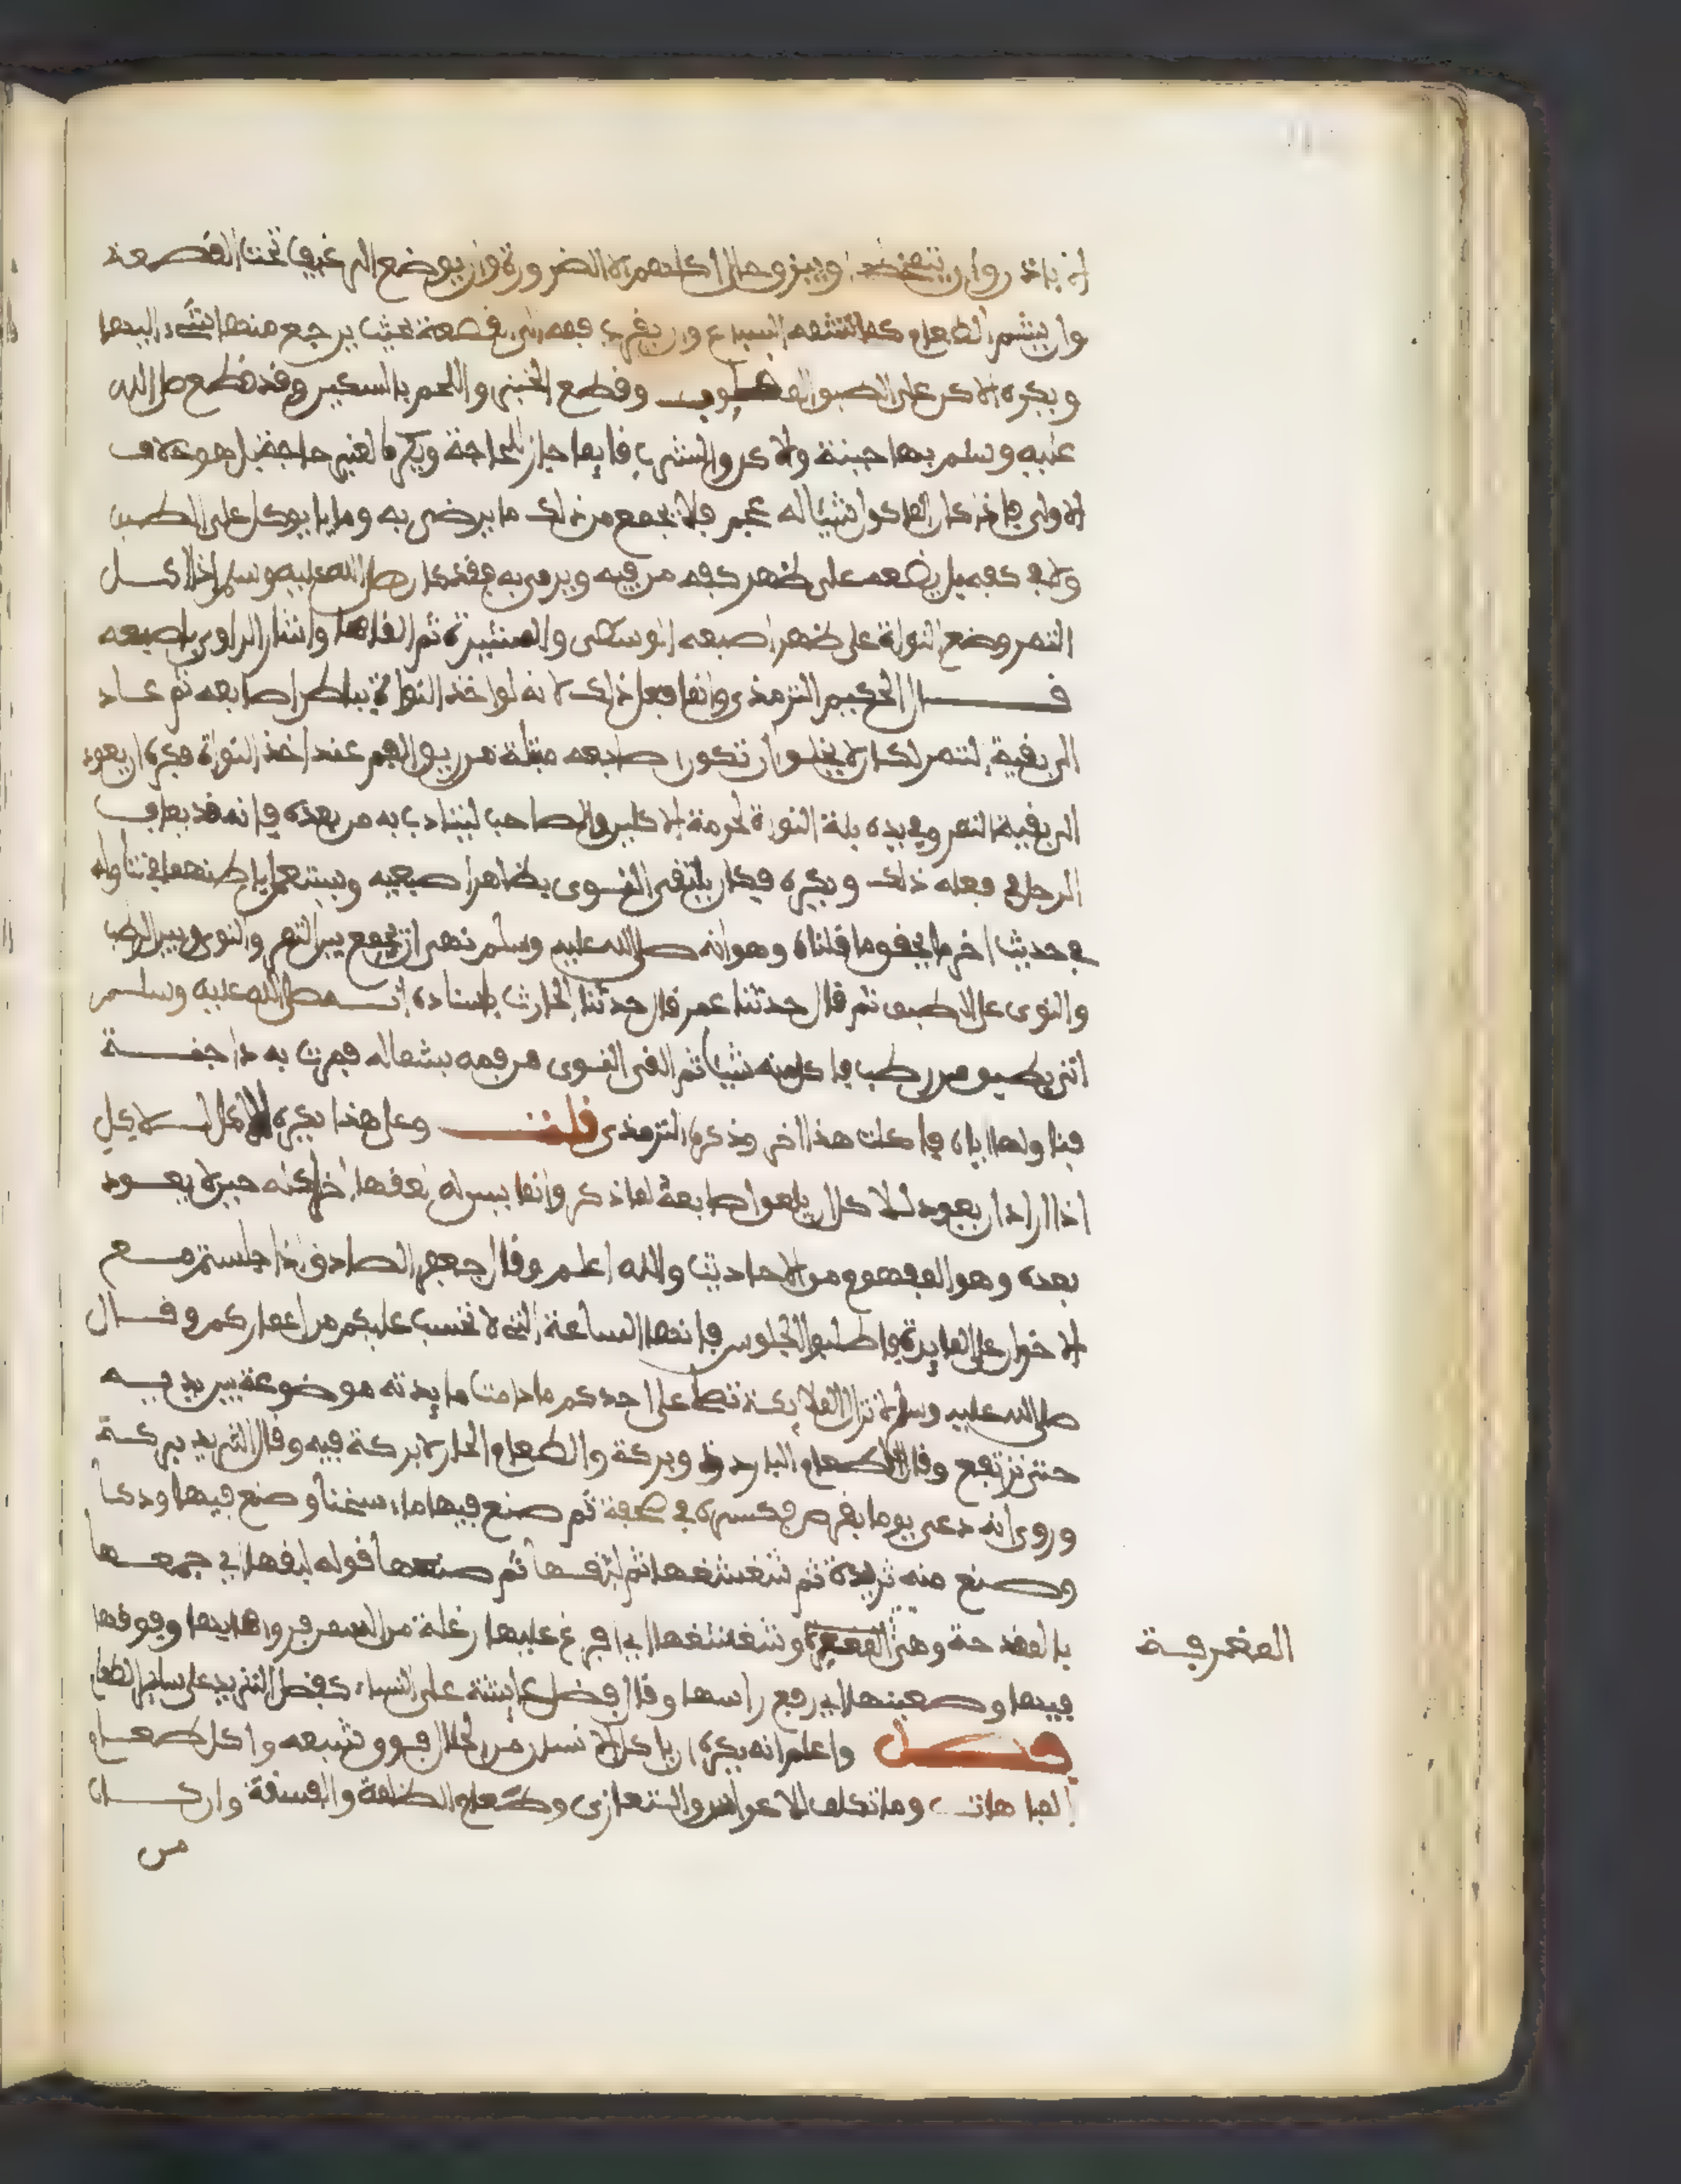 ان ياذنوا وان يتنخم او يبزق حال اكلهم الا لضرورة وان يوضع الرغيف تحت القصعة
وان يشم الطعام كما تشمه السباع وان يقرب فمه من القصعة بحيث يرجع منها شيء اليها
ويكره الاكل على الصبو وقطع الخبز واللحم بالسكين وقد قطع صلى الله
عليه وسلم بها جبنة والاكل والشرب قايما جاز لحاجة ويكره لغير حاجة بل هو خلاف
الاولى فاذا كان الماكول شيئا له عجم فلا يجمع من ذلك ما يرضى به وما يوكل على الطبق
ولا في كفه بل يضعه على ظهر كفه من فيه ويرمى به فقد كان صلى الله عليه وسلم اذا اكل
التمر وضع النواة على ظهر اصبعه الوسطى والمشيرة ثم القاها واشار الراوي باصبعه
قال الحكيم الترمذي وانما فعل ذلك لانه لو اخذ النواة بباطن اصابعه ثم عاد
الى بقية التمر لكان لا يخلو ان تكون اصابعه مبتلة من ريق الفم عند اخذ النواة فكره ان يعود
الى بقية التمر وفي يده بلة النواة لحرمة الاكلين والصاحب ليتادب به من بعده فانه قد يعاف
الرجل في فعله ذلك ويكره فكان يلقي النوى بظاهر اصبعيه ويستعمل باطنهما في تناوله
في حديث اخر ما يحقق ما قلناه وهو انه صلى الله عليه وسلم نهى ان يجمع بين التمر والنوى وبين الرطب
والنوى على الطبق ثم قال حدثنا عمر قال حدثنا الحارث باسناده انه صلى الله عليه وسلم
اتى بطبق من رطب فاكل منه شيئا ثم القى النوى من فمه بشماله فمرت به داجنة
فناولها اياه فاكلت هذا اخر وذكره الترمذي قلت وعلى هذا يكره للاكل
اذا اراد ان يعود للاكل ان يلعق اصابعه لما ذكر وانما يسن له لعقها اخر اكله حين لا يعود
بعده وهو المفهوم من الاحاديث والله اعلم وقال جعفر الصادق اذا جلستم مع
الاخوان على المايدة فاطلبوا الجلوس فانها الساعة التي لا تحسب عليكم من اعماركم وقال
صلى الله عليه وسلم لا تزال الملايكة تصلي على احدكم ما دامت مايدته موضوعة بين يديه
حتى ترتفع وقال الطعام البارد ذو بركة والطعام الحار لا بركة فيه وقال الثريد بركة
وروي انه دعى يوما بقرص فكسره في صحفة ثم صنع فيها ماء سخنا وصنع فيها ودكا
وصنع منه ثريدة ثم شغشغها ثم لبقها ثم صعنبها قوله لبقها اي جمعها
بالمقدحة وهي المغرفة وشغشغها اي افرغ عليها زغلة من السمن فرواها بها وفوقها
فيها وصعنبها اي رفع راسها وقال فضل عايشة على النساء كفضل الثريد على ساير الطعام
فصل واعلم انه يكره ان ياكل الانسان من الحلال فوق شبعه واكل طعام
المباهات وما تكلف للاعراس والتعازي وطعام الظلمة والفسقة وان كان
من
المغرفة